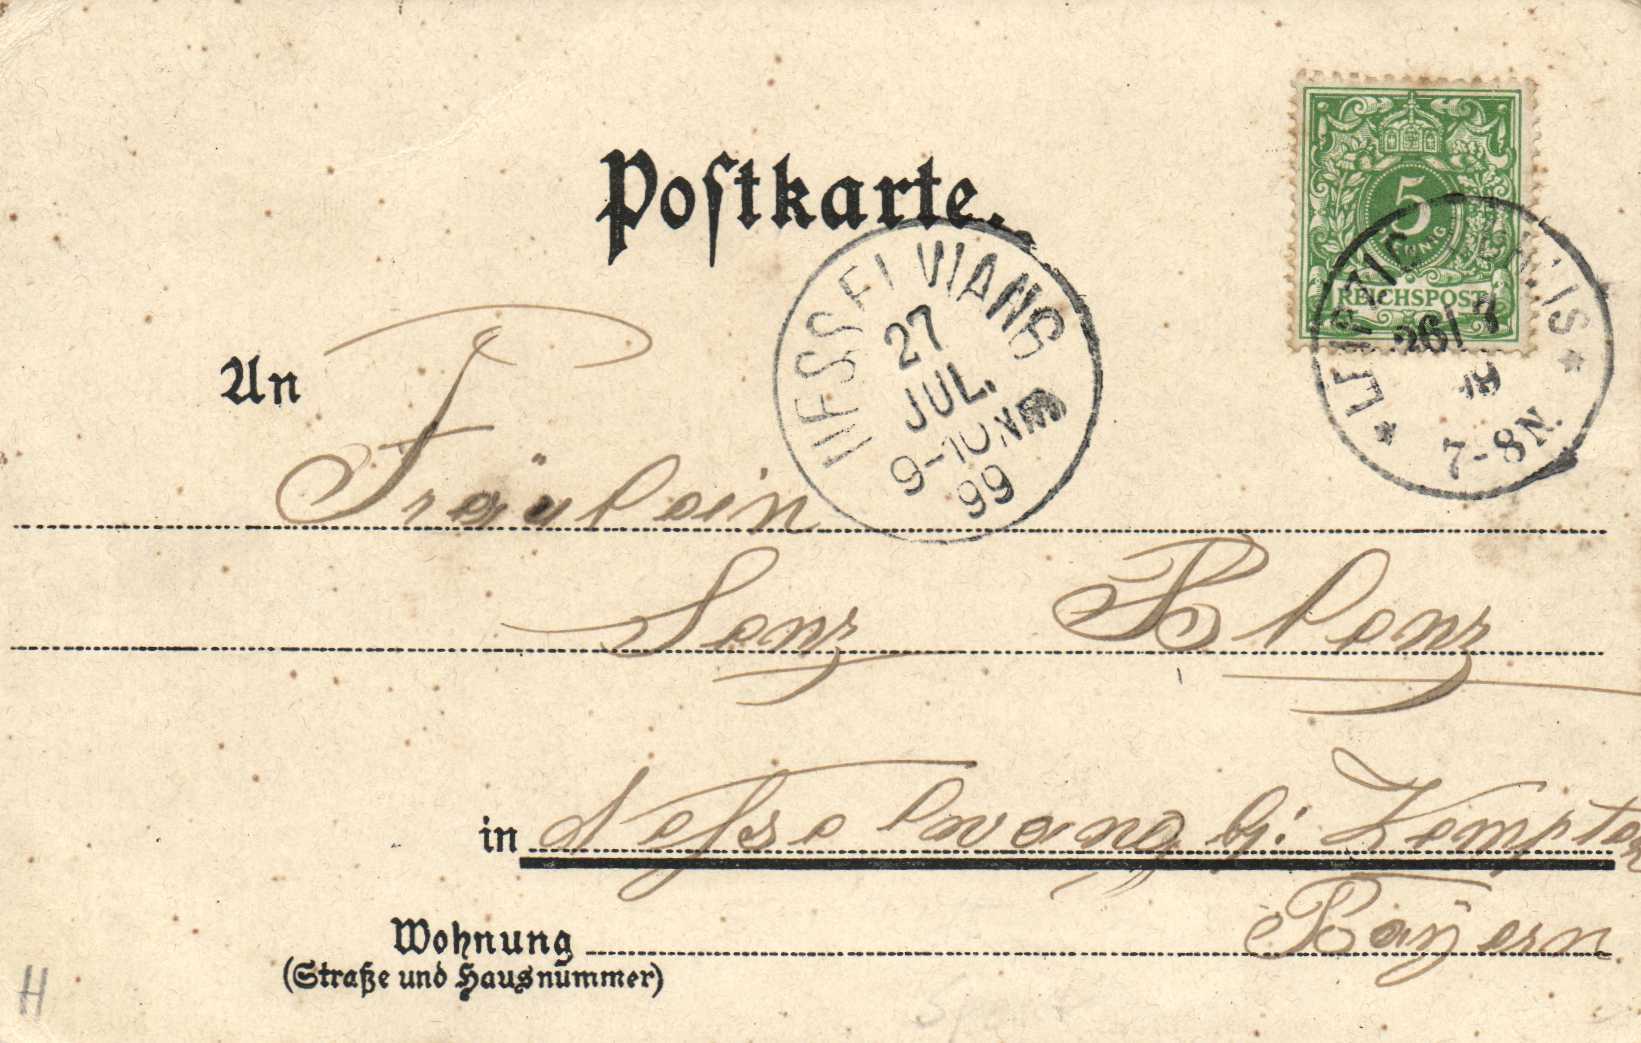 Postkarte.
5
PFENNIG
REICHSPOST
NESSELWANG
27
JUL.
9-10 NM
99
LEIPZIG
26/7
99
7-8N.
An
Fräulein
Senz Blenz
in Nesselwang b/: Kempten
Bayern
Wohnung
(Straße und Hausnummer)
H